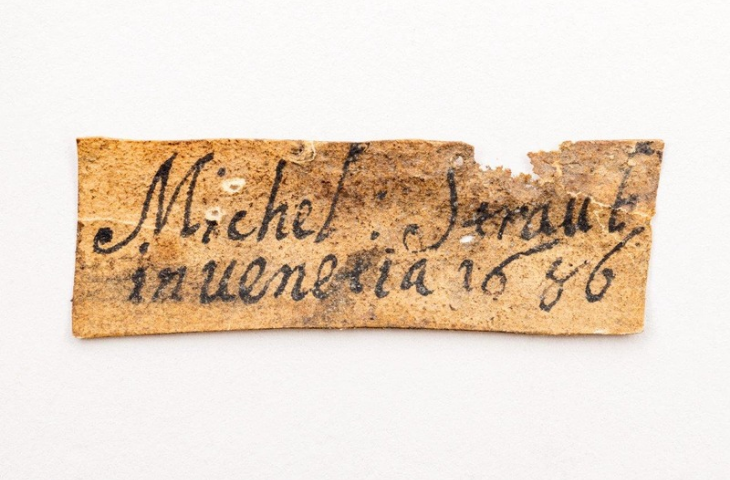 Michel Straub
in uenetia 1686